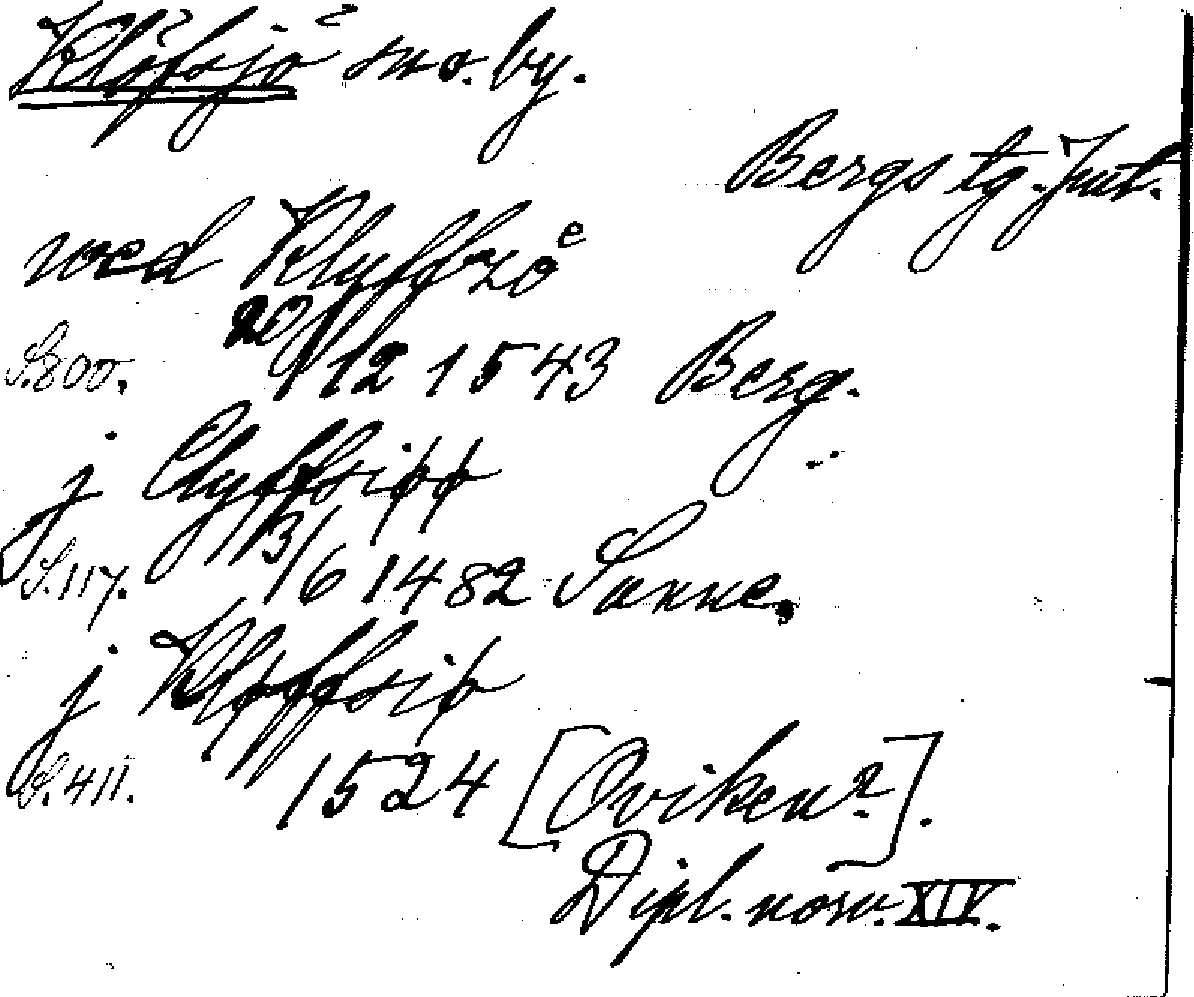 Klöfsjö sn o. by.
Bergs tg. Jmt.
wed Klyffzoͤ
S. 800. 20/12 1543 Berg.
j Clyffsiøø
S. 117. 3/6 1482 Sunne.
j Kløffsiø
S. 411. 1524 [Oviken?].
Dipl. norv. XIV.